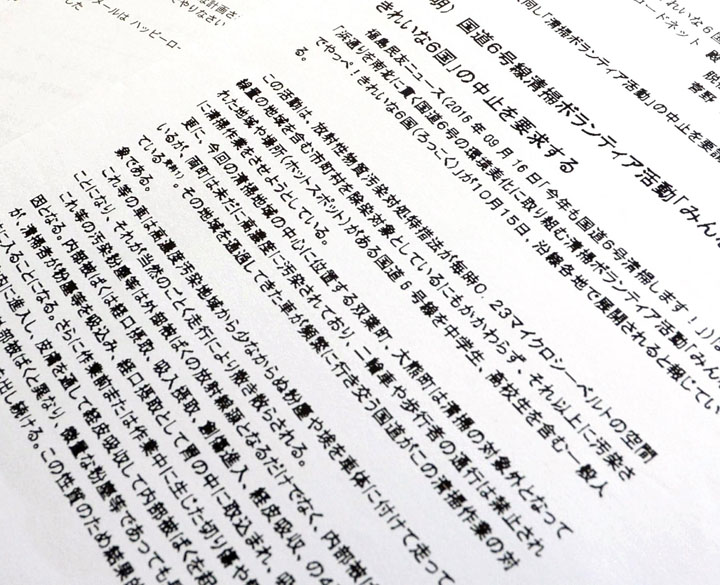 きれいな6国
コードネット 殿
菅野
共同し「清掃ボランティア活動」の中止を要請
明） 国道6号線清掃ボランティア活動「みんな
きれいな6国」の中止を要求する
福島民友ニュース（2016年09月16日「今年も国道6号清掃します！」）は
「浜通りを南北に貫く国道6号の環境美化に取り組む清掃ボランティア活動「みん
でやっぺ！きれいな6国（ろっこく）」が10月15日、沿線各地で展開されると報じてい
る。
この活動は、放射性物質汚染対処特措法が毎時0.23マイクロシーベルトの空間
線量の地域を含む市町村を除染対象としているにもかかわらず、それ以上に汚染さ
れた地域や場所（ホットスポット）がある国道6号線を中学生、高校生を含む一般人
に清掃作業をさせようとしている。
更に、今回の清掃地域の中心に位置する双葉町、大熊町は清掃の対象外となって
いるが、両町は未だに高濃度に汚染されており、二輪車や歩行者の通行は禁止され
ている。その地域を通過してきた車が頻繁に行き交う国道がこの清掃作業の対
象である。
これ等の車は高濃度汚染地域から少なからぬ粉塵や埃を車体に付けて走って
ことになり、それが当然のごとく走行により撒き散らされる。
これ等の汚染粉塵等は外部被ばくの放射線源となるだけでなく、内部被ば
因となる。内部被ばくは経口摂取、吸入摂取、創傷進入、経皮吸収、の4
が、清掃者が粉塵等を吸込み、経口摂取として胃の中に取込まれ、吸
に入ることになる。さらに作業前または作業中に生じた切り傷や
内に進入し、皮膚を通して経皮吸収して内部被ばくを
部被ばくと異なり、微量な粉塵等であっても
出し続ける。この性質のため結果的
メールは ハッピーロー